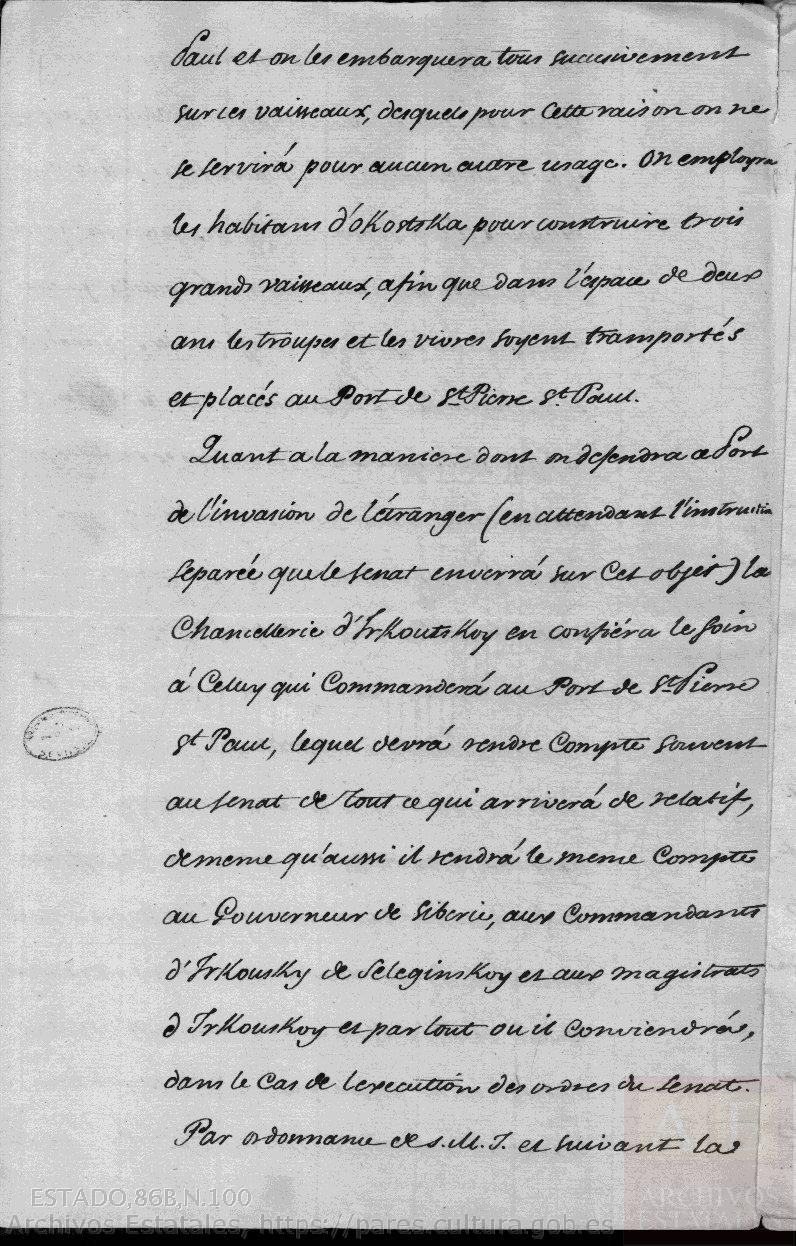 Paul et on les embarquera tous succesivement
sur ces vaisseaux, desquels pour Cette raison on ne
se servirá pour aucun autre usage. On employra
les habitans d'Okostska pour construire trois
grands vaisseaux, afin que dans l'éspace de deux
ans les troupes et les vivres soyent transportés
et placés au Port de St. Pierre St. Paul.
Quant a la maniere dont on defendra ce Port
de l'invasion de l'étranger (en attendant l'instruction
separée que le senat enverrá sur Cet objet) la
Chancellerie d'Irkoutskoy en confiéra le soin
á Celuy qui Commanderá au Port de St. Pierre
St. Paul, lequel devrá rendre Compte souvent
au senat de tout ce qui arriverá de relatif,
de meme qu'aussi il rendrá le meme Compte
au Gouverneur de Siberie, aux Commandants
d'Irkousky de Seleginskoy et aux magistrats
d'Irkouskoy et par tout ou il Conviendrá,
dans le Cas de l'execution des ordres du Senat.
Par ordonnance de S. M. I. et suivant la
ESTADO,86B,N.100
Archivos Estatales, https://pares.cultura.gob.es
AE
ARCHIVOS
ESTATALES